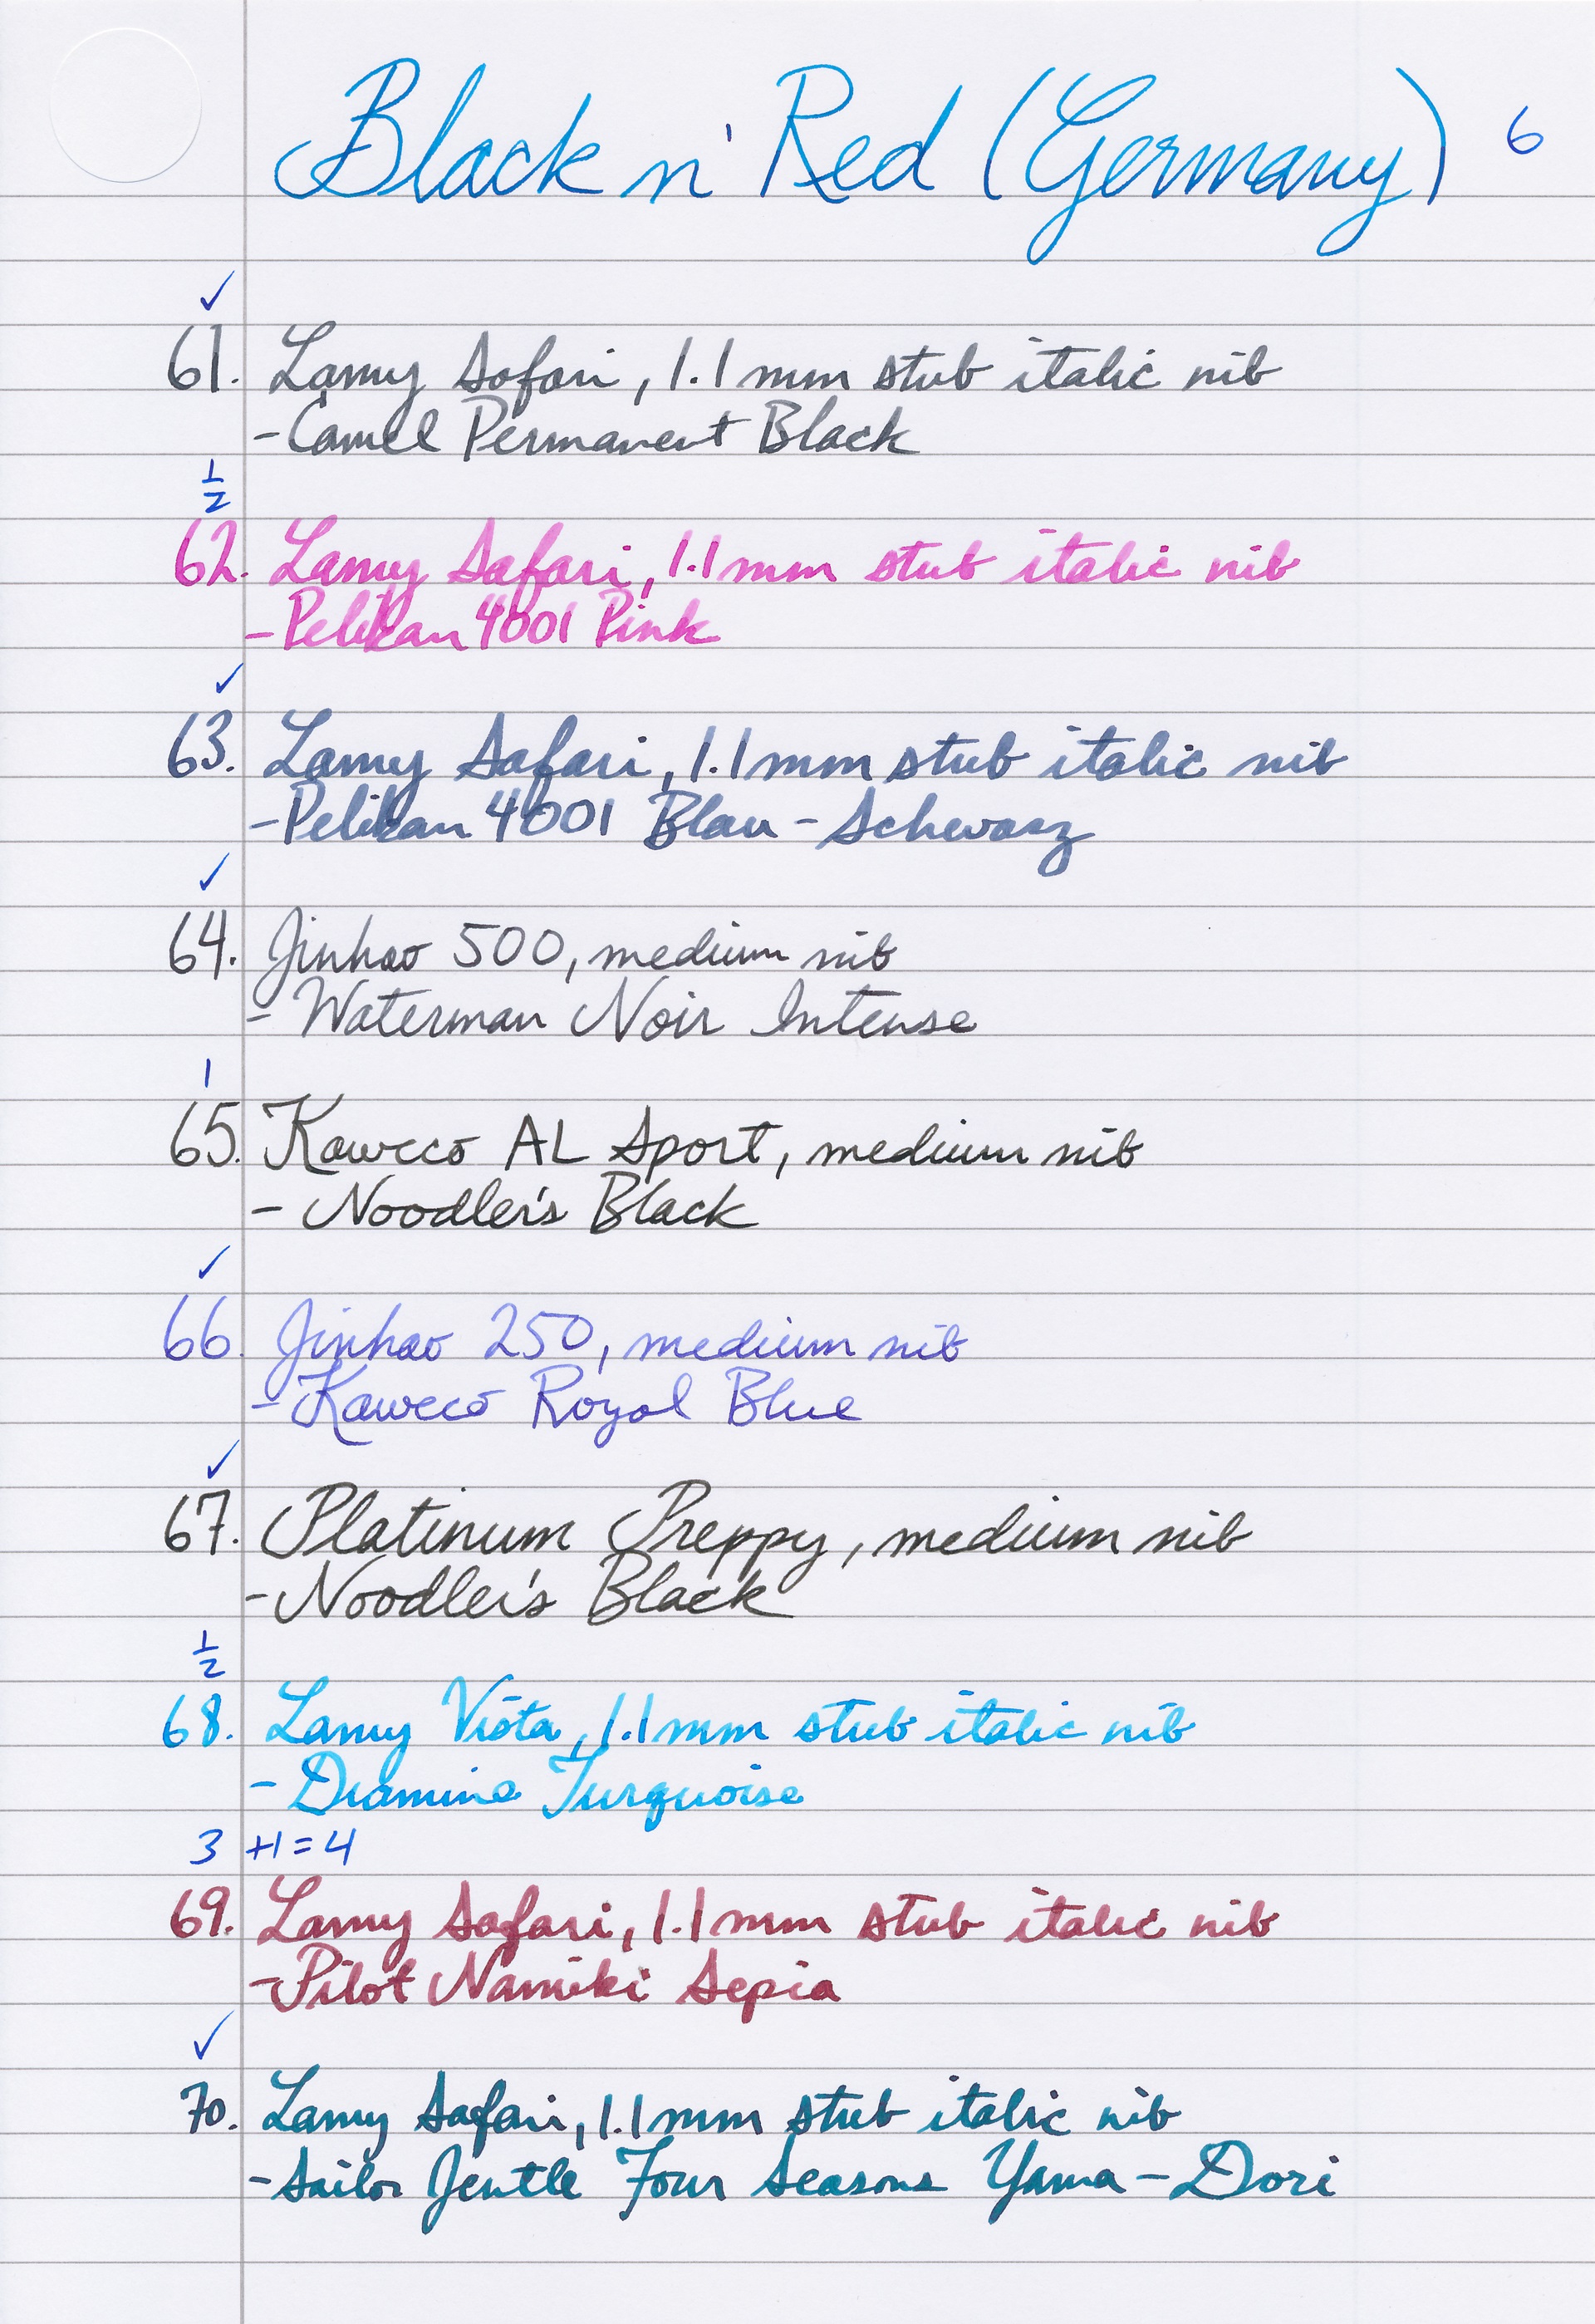 Black n' Red (Germany) 6
✓
61. Lamy Safari, 1.1mm stub italic nib
- Camel Permanent Black
1/2
62. Lamy Safari, 1.1mm stub italic nib
- Pelikan 4001 Pink
✓
63. Lamy Safari, 1.1mm stub italic nib
- Pelikan 4001 Blau-Schwarz
✓
64. Jinhao 500, medium nib
- Waterman Noir Intense
1
65. Kaweco AL Sport, medium nib
- Noodler's Black
✓
66. Jinhao 250, medium nib
- Kaweco Royal Blue
✓
67. Platinum Preppy, medium nib
- Noodler's Black
1/2
68. Lamy Vista, 1.1mm stub italic nib
- Diamine Turquoise
3 +1=4
69. Lamy Safari, 1.1mm stub italic nib
- Pilot Namiki Sepia
✓
70. Lamy Safari, 1.1mm stub italic nib
- Sailor Jentle Four Seasons Yama-Dori